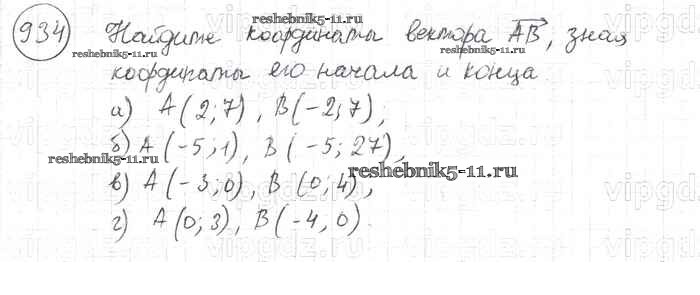 934 Найдите координаты вектора AB, зная
координаты его начала и конца
а) A(2;7), B(-2;7),
б) A(-5;1), B(-5;27),
в) A(-3;0), B(0;4),
г) A(0;3), B(-4,0).
reshebnik5-11.ru
reshebnik5-11.ru
reshebnik5-11.ru
reshebnik5-11.ru
reshebnik5-11.ru